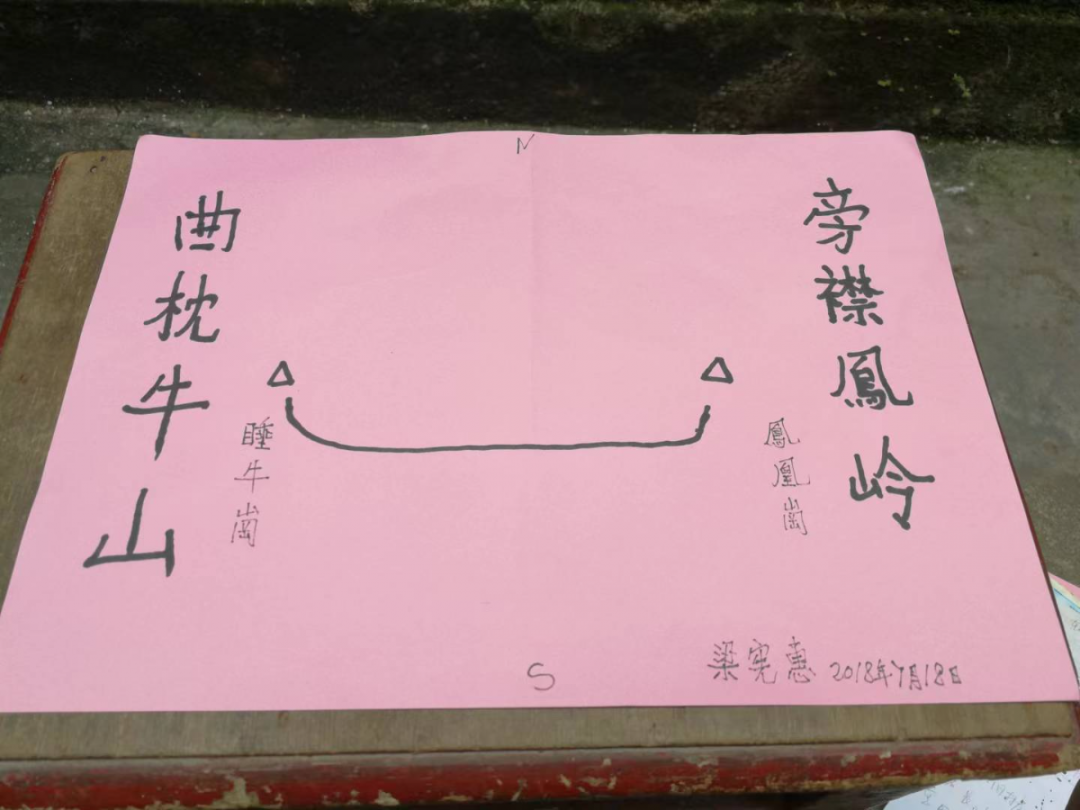 N
旁襟鳳岭
曲枕牛山
鳳凰崗
睡牛崗
S
梁宪惠 2018年7月18日